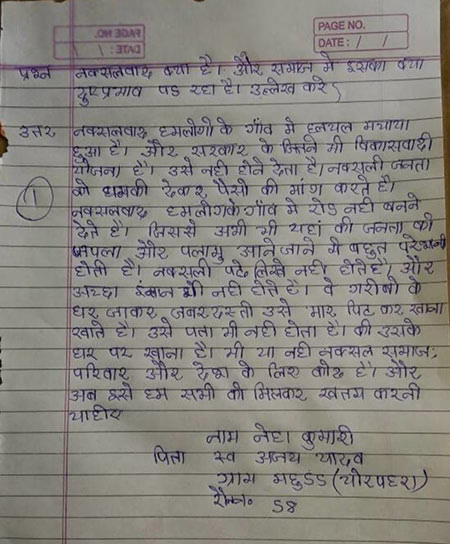 PAGE NO.
DATE: / /
PAGE NO.
DATE: / /
प्रश्न नक्सलवाद क्या है। और समाज मे इसका क्या
दुष्प्रभाव पड रहा है। उल्लेख करे
उत्तर नक्सलवाद हमलोगो के गाँव मे हलचल मचाया
हुआ है। और सरकार के जितने भी विकासवादी
योजना है। उसे नही होने देता है। नक्सली जनता
1 को धमकी देकर, पैसो की मांग करते है।
नक्सलवाद हमलोगके गाँव मे रोड नही बनने
देते है। जिससे अभी भी यहां की जनता को
और पलामु आने जाने मे बहुत परेशानी
होती है। नक्सली पढे लिखे नही होते है, और
अच्छा इंसान भी नही होते है। वे गरीबो के
घर जाकर जबरदस्ती उसे मार पिट कर खाना
खाते है। उसे पता भी नही होता है। की उसके
घर पर खाना है। भी या नही नक्सल समाज,
परिवार और देश के लिए कोढ है। और
अब इसे हम सभी को मिलकर खत्म करनी
चाहीए
नाम नेहा कुमारी
पिता स्व अजय यादव
ग्राम (चोरपहरा)
रौल न. 58